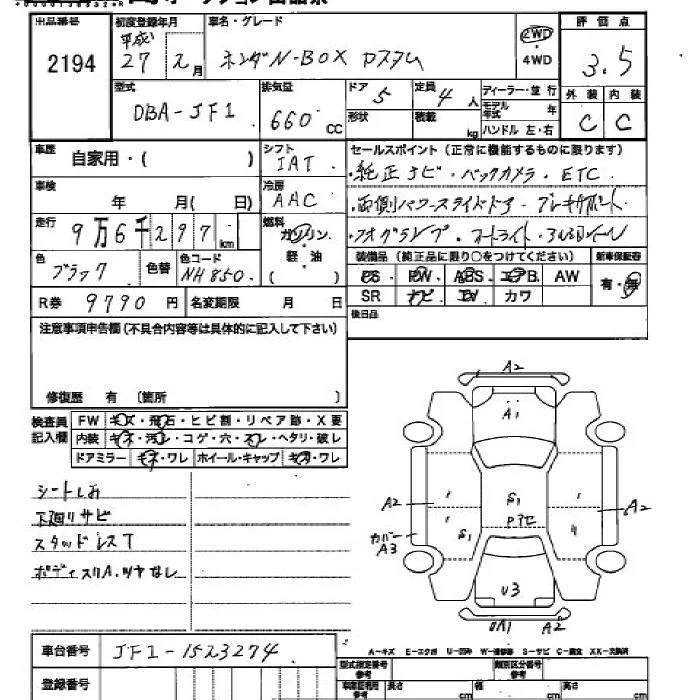 出品番号
2194
初度登録年月
平成
27 2月
車名・グレード
ホンダN-BOX カスタム
2WD
・
4WD
評価点
3.5
外装 内装
C C
型式
DBA-JF1
排気量
660 CC
ドア
5
形状
定員
4人
積載
kg
ディーラー・並行
モデル年式 年
ハンドル 左・右
車歴
自家用・( )
シフト
IAT
セールスポイント(正常に機能するものに限ります)
・純正ナビ・バックカメラ・ETC
・両側パワースライドドア・ブレーキサポート
・フォグランプ・オートライト・アルミホイール
車検
年 月( 日)
冷房
AAC
走行
9万6千297km
燃料
ガソリン
・
軽・油
( )
色
ブラック
色替
色コード
NH850
装備品(純正品に限り○をつけてください)
新車保証書
PS PW ABS エアB AW
有・無
SR ナビ カワ
R券 9790円
名変期限 月 日
後日品
注意事項申告欄(不具合内容等は具体的に記入して下さい)
修復歴 有 〔箇所 〕
検査員
記入欄
FW キズ・飛石・ヒビ割・リペア跡・X要
内装 キズ・汚レ・コゲ・穴・スレ・ヘタリ・破レ
ドアミラー キズ・ワレ ホイール・キャップ キズ・ワレ
シートしみ
下廻りサビ
スタッドレスT
ボディスリA・ツヤなし
A2
A1
A2
S1
Pアセ
A2
カバー
A3
S1
U3
UA1
A2
車台番号
JF1-1523274
A-キズ E-エクボ U-凹み W-補修跡 S-サビ C-腐食 XX-交換済
登録番号
型式指定番号
参考
類別区分番号
参考
長さ cm
幅 cm
高 cm